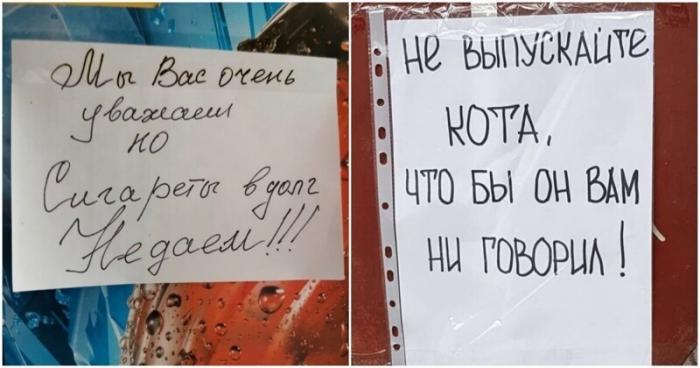 Мы Вас очень
уважаем
но
Сигареты в долг
Недаем!!!
НЕ ВЫПУСКАЙТЕ
КОТА,
ЧТО БЫ ОН ВАМ
НИ ГОВОРИЛ!